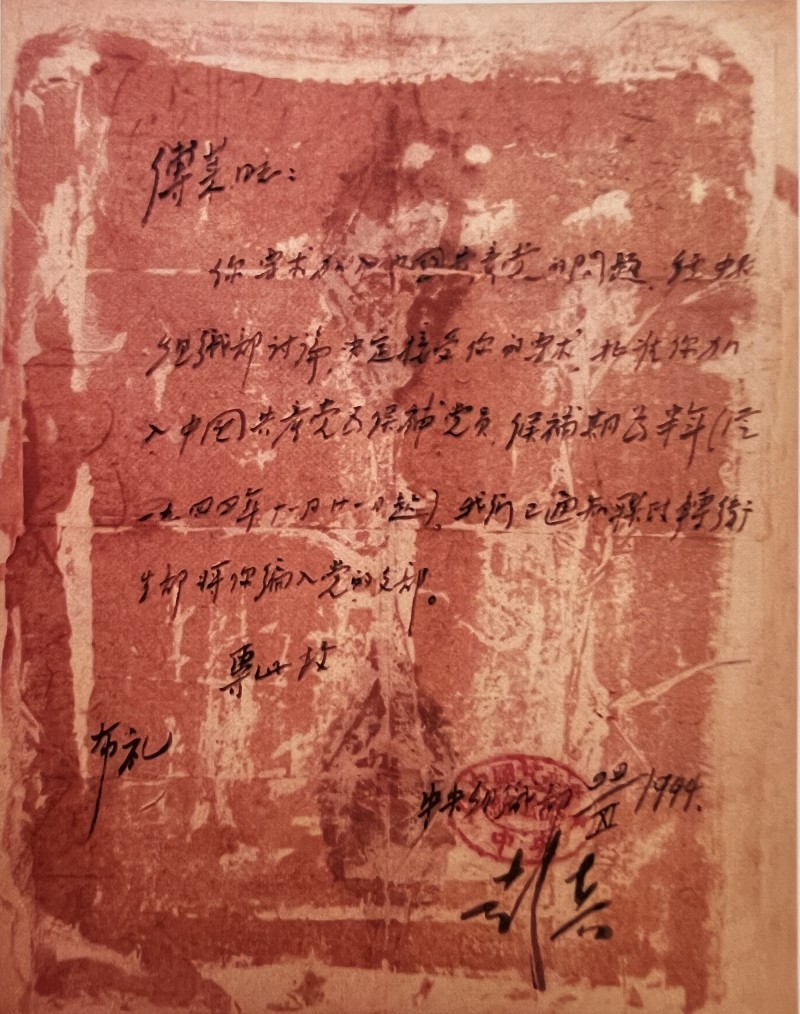 傅莱同志：
你要求加入中国共产党的问题，经中央
组织部讨论，决定接受你的要求，批准你加
入中国共产党为候补党员，候补期为半年（从
一九四四年十一月廿一日起），我们已通知联政转衛
生部将你编入党的支部。
专此 致
布礼
中央组织部 /XI 1944.